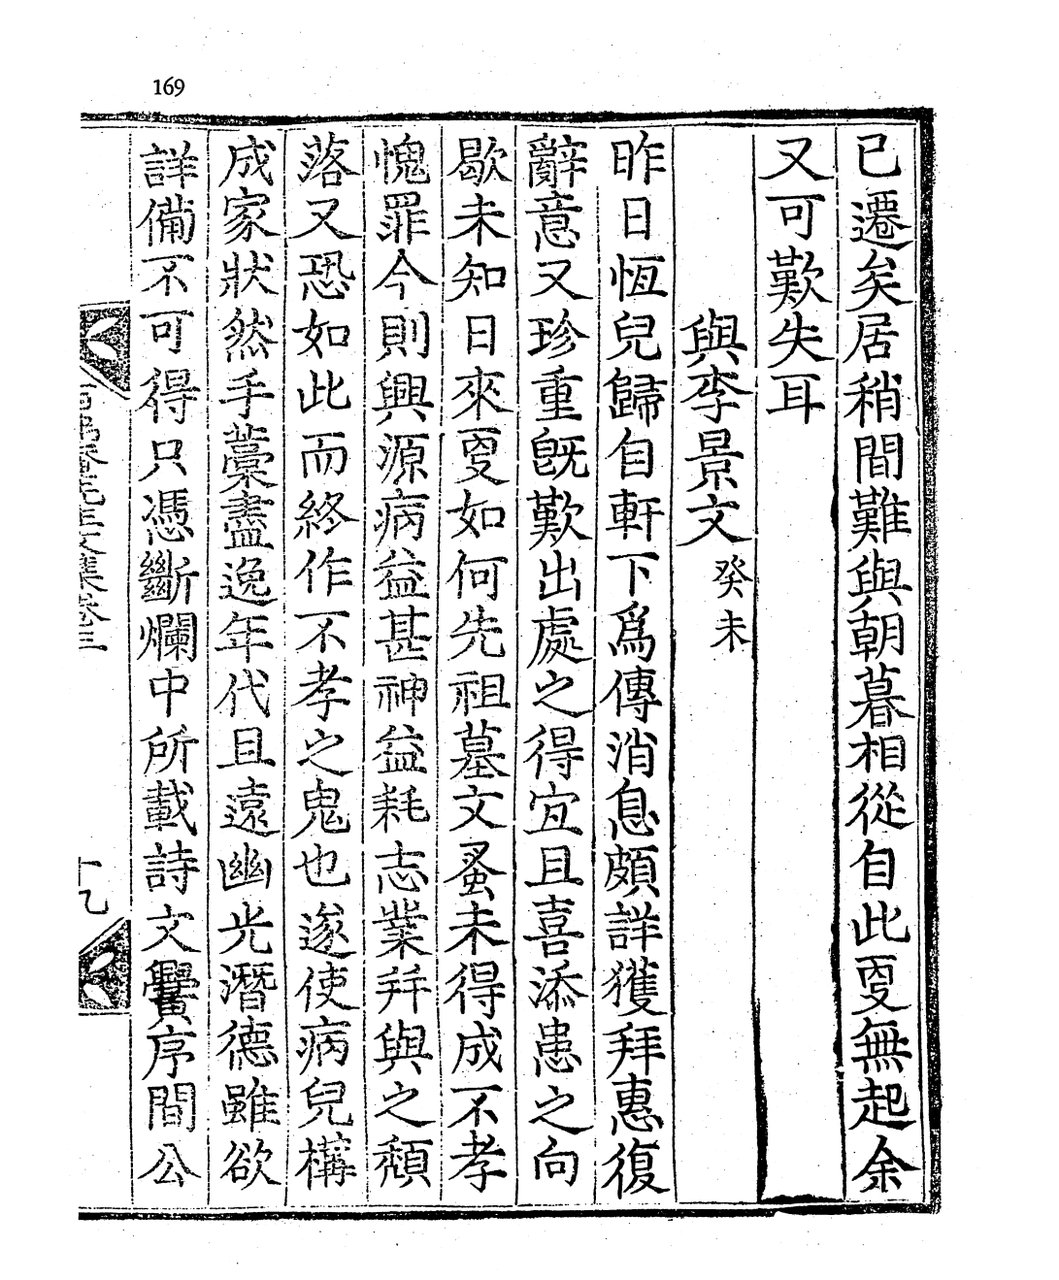 169
已遷矣居稍間難與朝暮相從自此更無起余
又可歎失耳
與李景文 癸未
昨日恆兒歸自軒下爲傳消息頗詳獲拜惠復
辭意又珍重旣歎出處之得宜且喜添患之向
歇未知日來更如何先祖墓文蚤未得成不孝
愧罪今則興源病益甚神益耗志業幷與之頹
落又恐如此而終作不孝之鬼也遂使病兒構
成家狀然手藁盡逸年代且遠幽光潛德雖欲
詳備不可得只憑斷爛中所載詩文黌序間公
先生文集卷三
十九